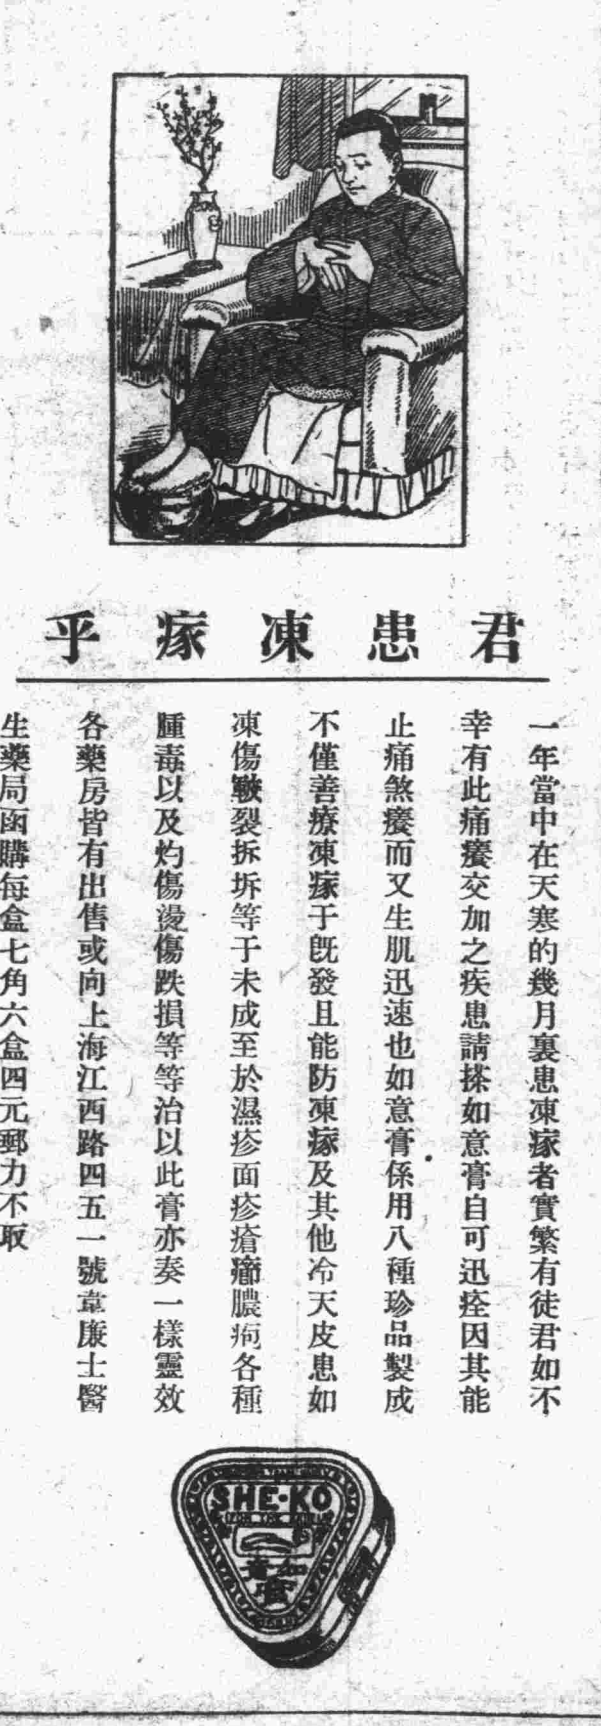 君患凍瘃乎
一年當中在天寒的幾月裏患凍瘃者實繁有徒君如不
幸有此痛癢交加之疾患請搽如意膏自可迅痊因其能
止痛煞癢而又生肌迅速也如意膏係用八種珍品製成
不僅善療凍瘃于既發且能防凍瘃及其他冷天皮患如
凍傷皸裂拆坼等于未成至於濕疹面疹瘡癤膿疱各種
腫毒以及灼傷燙傷跌損等等治以此膏亦奏一樣靈效
各藥房皆有出售或向上海江西路四五一號韋廉士醫
生藥局函購每盒七角六盒四元郵力不取
SHE-KO
FOR THE SKIN
如意膏